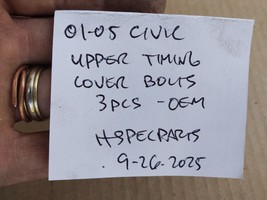 01-05 CIVIC
UPPER TIMING
COVER BOLTS
3PCS - OEM
HSPECPARTS
9-26-2025